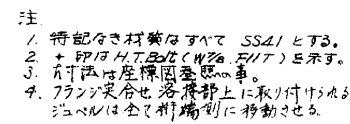 注
1. 特記なき材質はすべて SS41 とする。
2. + 印は H.T.Bolt (W7/8 F11T) を示す。
3. 寸法は座標図参照の事。
4. フランジ突合せ溶接部上に取り付けられる
ジュベルは全て 側に移動させる。